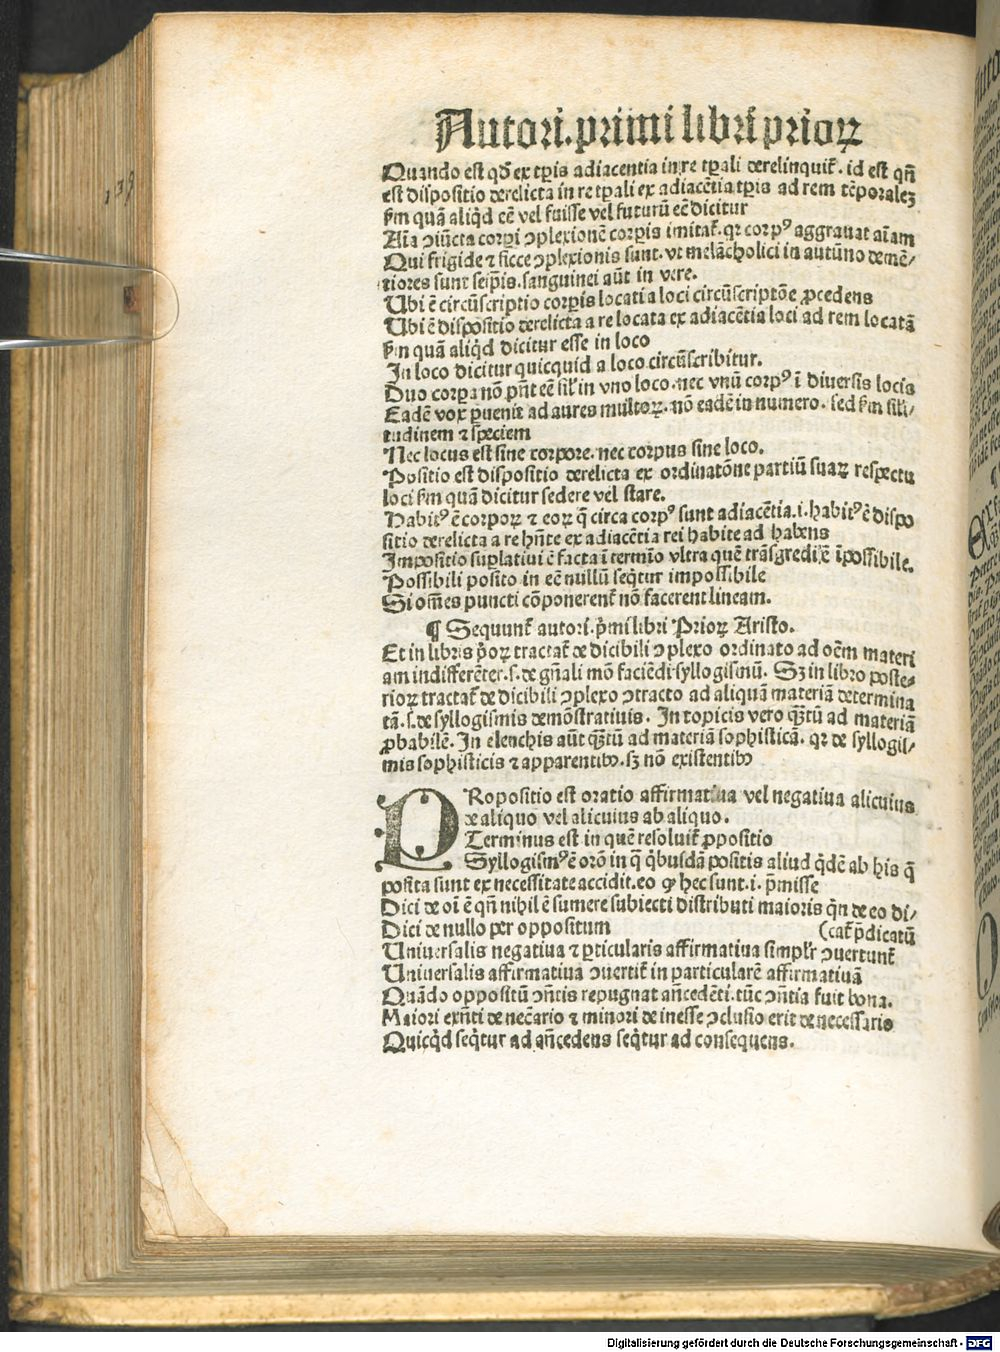 Autori. primi libri prioꝝ
Quando est qd̄ ex tꝑis adiacentia in re tꝑali derelinquit᷑. id est qn̄
est dispositio derelicta in re tꝑali ex adiacētia tꝑis ad rem tēporaleꝫ
ẜm quā aliqͥd eē vel fuisse vel futurū eē dicitur
Aīa ↄiūcta corꝑi ↄplexionē corꝑis imitat᷑. qꝛ corpꝰ aggrauat aīam
Qui frigide ⁊ sicce ↄplexionis sunt. vt melācholici in autūno demē/
tiores sunt seip̄is. sanguinei aūt in vere.
Ubi ē circūscriptio corꝑis locati a loci circūscriptōe ꝓcedens
Ubi ē dispositio derelicta a re locata ex adiacētia loci ad rem locatā
ẜm quā aliqͥd dicitur esse in loco
In loco dicitur quicquid a loco circūscribitur.
Duo corpa nō pn̄t eē sil̓ in vno loco. nec vnū corpꝰ ī diuersis locis
Eadē vox ꝑuenit ad aures multoꝝ. nō eadē in numero. sed ẜm sili/
tudinem ⁊ speciem
Nec locus est sine corpore. nec corpus sine loco.
Positio est dispositio derelicta ex ordinatōne partiū suaꝝ respectu
loci ẜm quā dicitur sedere vel stare.
Habitꝰ ē corpoꝝ ⁊ eoꝝ q̄ circa corpꝰ sunt adiacētia. i. habitꝰ ē dispo
sitio derelicta a re hn̄te ex adiacētia rei habite ad habens
Impositio suꝑlatiui ē facta ī termīo vltra quē trāsgredi ē īpossibile.
Possibili posito in eē nullū seqͥtur impossibile
Si om̄es puncti cōponerent᷑ nō facerent lineam.
¶ Sequunt᷑ autori. pͥmi libri Prioꝝ Aristo.
Et in libris pͥoꝝ tractat᷑ de dicibili ↄplexo ordinato ad oēm materi
am indifferēter. s. de gn̄ali mō faciēdi syllogismū. Sꝫ in libro poste-
rioꝝ tractat᷑ de dicibili ↄplexo ↄtracto ad aliquā materiā determina
tā. s. de syllogismis demōstratiuis. In topicis vero qͣtū ad materiā
ꝓbabilē. In elenchis aūt qͣtū ad materiā sophisticā. qꝛ de syllogis/
mis sophisticis ⁊ apparentibꝰ. sꝫ nō existentibꝰ
PRopositio est oratio affirmatiua vel negatiua alicuius
de aliquo vel alicuius ab aliquo.
Terminus est in quē resoluit᷑ ꝓpositio
Syllogismꝰ ē orō in q̄ qͥbusdā positis aliud qͥdē ab his q̄
posita sunt ex necessitate accidit. eo ꝙ hec sunt. i. pͥmisse
Dici de oī ē qn̄ nihil ē sumere subiecti distributi maioris qͥn de eo di/
Dici de nullo per oppositum (cat᷑ p̄dicatū
Uniuersalis negatiua ⁊ ꝑticularis affirmatiua simplr̄ ↄuertunt᷑
Uniuersalis affirmatiua ↄuertit᷑ in particularē affirmatiuā
Quādo oppositū ↄn̄tis repugnat an̄cedēti. tūc ↄn̄tia fuit bona.
Maiori exn̄ti de nec̄ario ⁊ minori de inesse ↄclusio erit de necessario
Quicqͥd seqͥtur ad an̄cedens seqͥtur ad consequens.
139
Digitalisierung gefördert durch die Deutsche Forschungsgemeinschaft - DFG